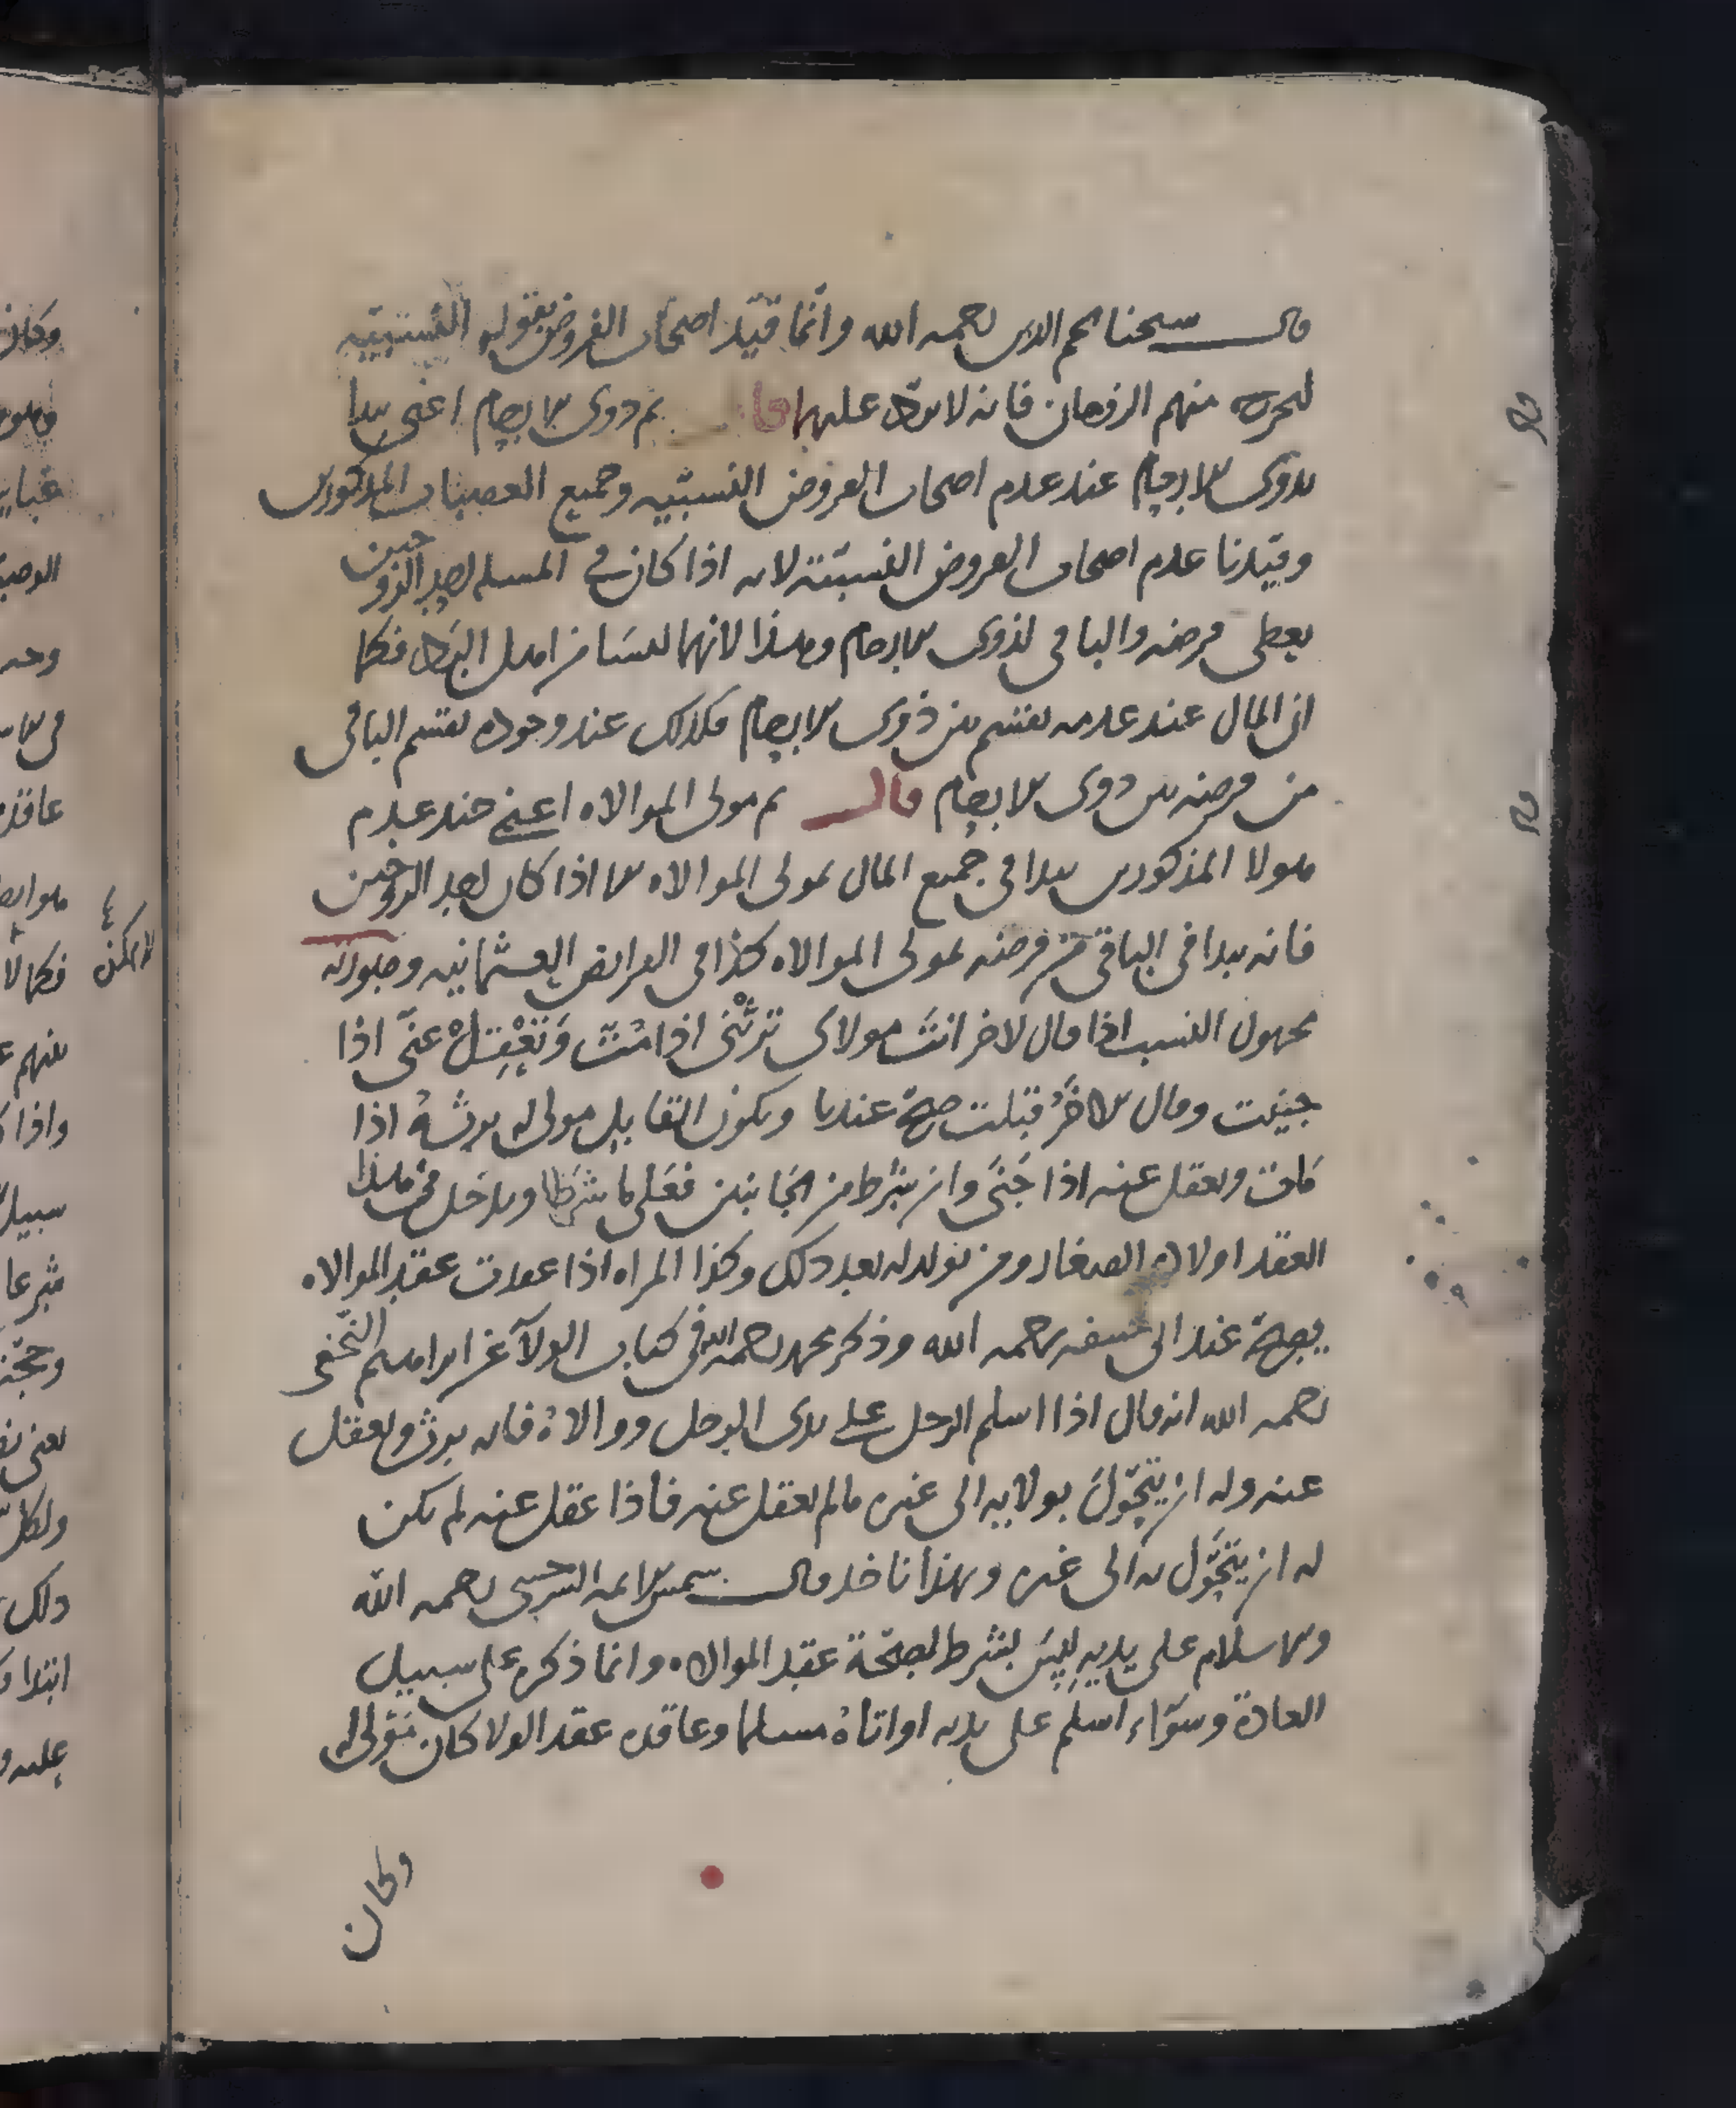 قال شيخنا نجم الدين رحمه الله وانما قيّد اصحاب الفروض بقوله النسبيّه
ليخرج منهم الزوجان فانه لا يردّ عليهما قال ثم ذوى الارحام اعنى يبدا
بذوى الارحام عند عدم اصحاب الفروض النسبيّه وجميع العصبات المذكورين
وقيدنا عدم اصحاب الفروض النسبيّة لانه اذا كان فى المسله احد الزوجين
يعطى فرضه والباقى لذوى الارحام وهذا لانهما ليسا من اهل الردّ فكما
ان المال عند عدمه يقسم بين ذوى الارحام فكذلك عند وجوده يقسم الباقى
من فرضه بين ذوى الارحام قال ثم مولى الموالاه اعنى عند عدم
هولا المذكورين يبدا فى جميع المال بمولى الموالاه الا اذا كان احد الزوجين
فانه يبدا فى الباقى من فرضه بمولى الموالاه كذا فى الفرايض العثمانيه وصورته
مجهول النسب اذا قال لاخر انتَ مولاى ترثنى اذا متّ وَتَعْقِلْ عنّى اذا
جنيت وقال الاخَرُ قبلت صحّ عندنا ويكون القابل مولى له يرثهُ اذا
مَات ويعقل عنه اذا جَنَى وان شرط من الجَانبين فعَلى ما شرطا ويدخل فى هذا
العقد اولاده الصغار ومن يولد له بعد ذلك وكذا المراه اذا عقدت عقد الموالاه
يصحّ عند ابى حنيفه رحمه الله وذكر محمد رحمه الله فى كتاب الولآ عن ابراهيم النّخعى
رحمه الله انه قال اذا اسلم الرجل على يدى الرجل ووالاهُ فانه يرث ويعقل
عنه وله ان يتحَوّلَ بولايه الى غيره ما لم يعقل عنه فاذا عقل عنه لم يكن
له ان يتحَوّل به الى غيره وبهذا ناخذ قال شمس الايمه السرخسى رحمه الله
والاسلام على يديه ليسَ بشرط لصحّة عقد الموالاه وانما ذكره على سبيل
العادة وسوَآء اسلم على يديه او اتاهُ مسلما وعاقده عقد الولا كان مَوْلى له
وكان